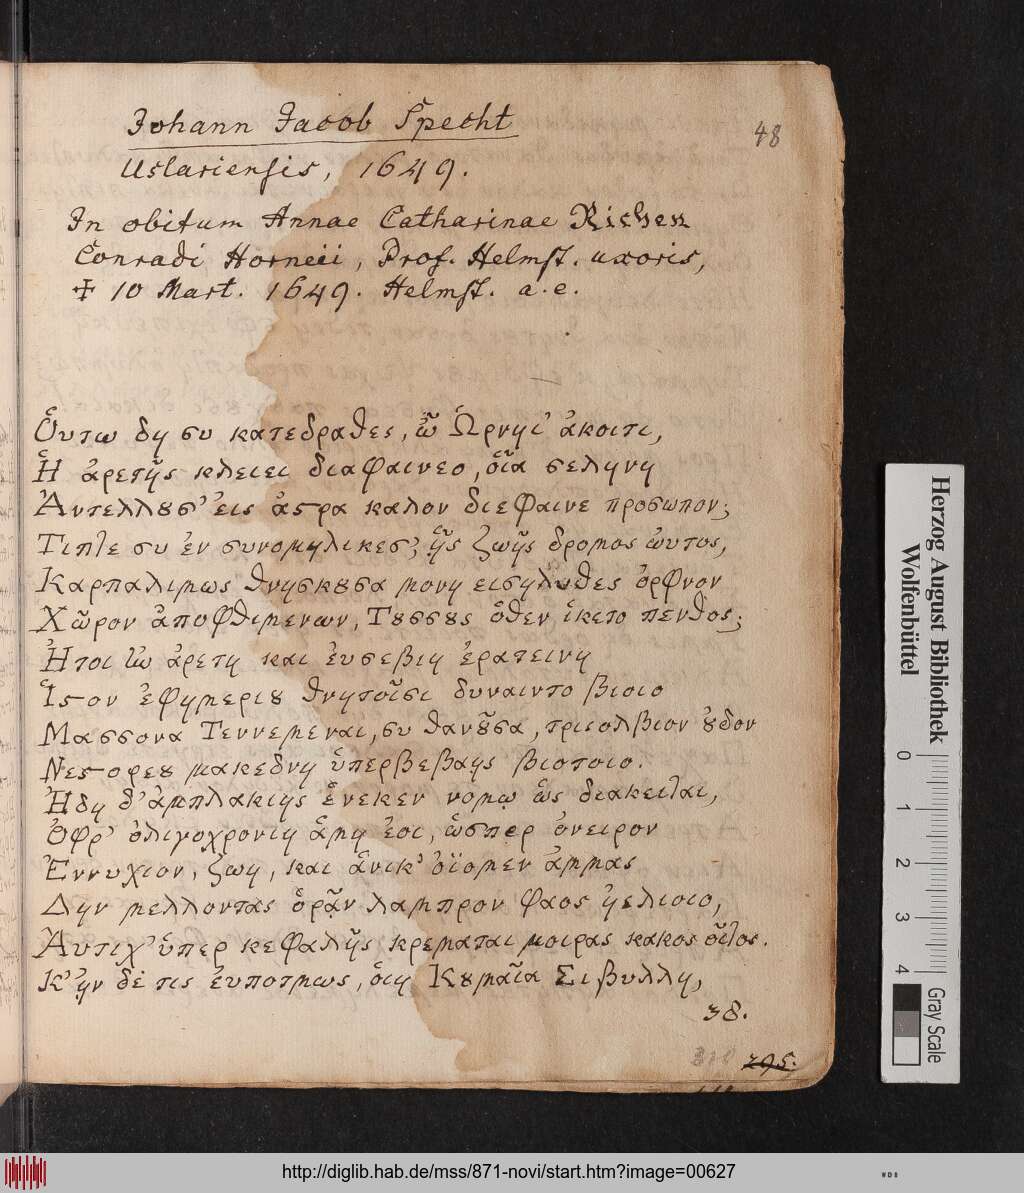 Johann Jacob Specht
48
Uslariensis, 1649.
In obitum Annae Catharinae Richen
Conradi Horneii, Prof. Helmst. uxoris,
✠ 10 Mart. 1649. Helmst. a.e.
Ὅυτω δη συ κατεδραθες, ὦ Ὡρνηϊ᾽ ἀκοιτι,
Ἣ ἀρετῆς κλειει διαφαινεο, οἷα σεληνη
Ἀντελλουσ᾽ ἐις ἀστρα καλον διεφαινε προσωπον;
Τιπτε συ ἐν συνομηλικεσ; ᾗς ζωῆς δρομος ὡυτος,
Καρπαλιμως θνησκουσα μονη εισηλυθες ὀρφνον
Χῶρον ἀποφθιμενων, Τουσσους ὅθεν ἱκετο πενθος;
Ἠτοι ἀρετη και ἐυσεβιη ἐρατεινη
Ἶσον ἐφημεριου θνητοῖσι δυναιντο βιοιο
Μασσονα Τεννεμεναι, συ θανοῦσα, τρισολβιον οὐδον
Νεστορεου μακεδνη ὑπερβεβαης βιοτοιο.
Ἠδη δ᾽ ἀμπλακιης ἕνεκεν νομω ὧς διακειται,
Ὀφρ᾽ ὀλιγοχρονιη ἅμη ἐοι, ὥσπερ ὀνειρον
Ἐννυχιον, ζωη, και ἅνικ᾽ ὀϊομεν ἀμμας
Δην μελλοντας ὁρᾷν λαμπρον φαος ἠελιοιο,
Ἀυτιχ᾽ ὑπερ κεφαλῆς κρεμαται μοιρας κακος οἶτος.
Κ᾽ ἠν δέ τις ἐυποτμως, ὁιη Κουμαῖα Σιβυλλη,
38.
295.
Herzog August Bibliothek
Wolfenbüttel
0 1 2 3 4
Gray Scale
http://diglib.hab.de/mss/871-novi/start.htm?image=00627
WDB